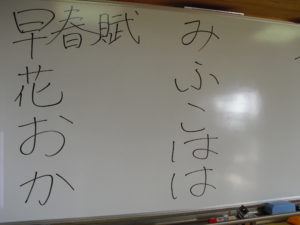 早春賦
花
お
か
み
ふ
こ
は
は